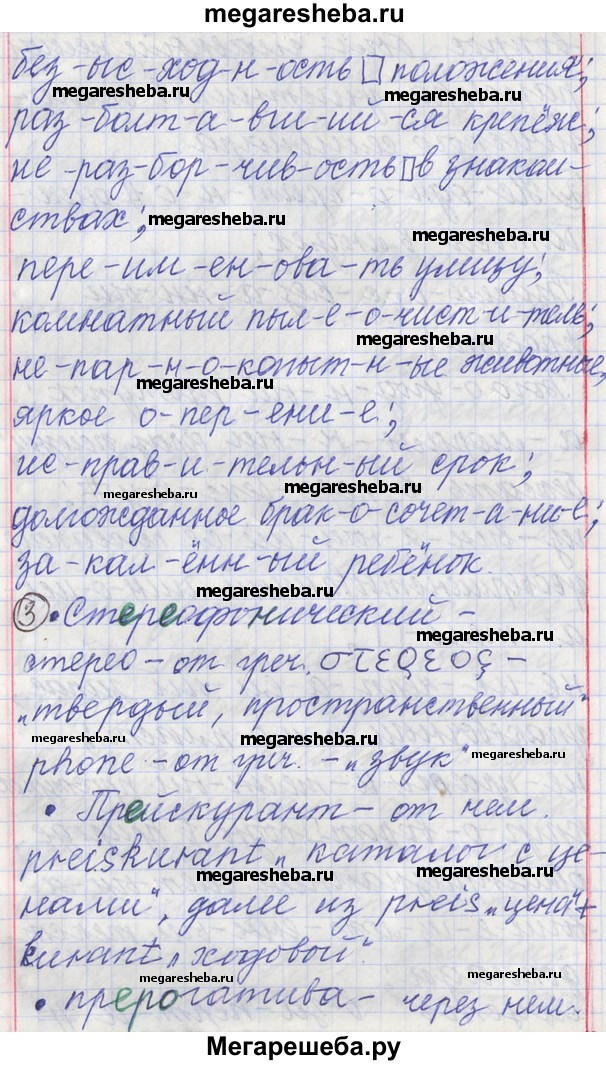 megaresheba.ru
без-ыс-ход-н-ость▯ положения;
megaresheba.ru megaresheba.ru
раз-болт-а-вш-ий-ся крепёж;
megaresheba.ru
не-раз-бор-чив-ость▯ в знаком-
ствах; megaresheba.ru
megaresheba.ru
пере-им-ен-ова-ть улицу;
megaresheba.ru
комнатный пыл-е-о-чист-и-тель;
megaresheba.ru
не-пар-н-о-копыт-н-ые животные,
megaresheba.ru
яркое о-пер-ени-е;
megaresheba.ru
ис-прав-и-тельн-ый срок;
megaresheba.ru megaresheba.ru
долгожданное брак-о-сочет-а-ни-е;
megaresheba.ru
за-кал-ённ-ый ребёнок.
megaresheba.ru
③ • Стереофонический –
megaresheba.ru
стерео – от греч. στερεος –
"твердый, пространственный"
megaresheba.ru megaresheba.ru megaresheba.ru
phone – от греч. – "звук"
• Прейскурант – от нем.
megaresheba.ru
preiskurant "каталог с це-
megaresheba.ru megaresheba.ru
нами", далее из preis "цена"+
kurant "ходовой".
megaresheba.ru megaresheba.ru
• прерогатива – через нем.
Мегарешеба.ру